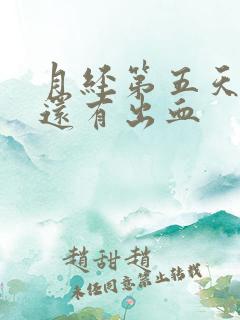 月經第五天
還有出血
趙甜趙
未经同意禁止转载